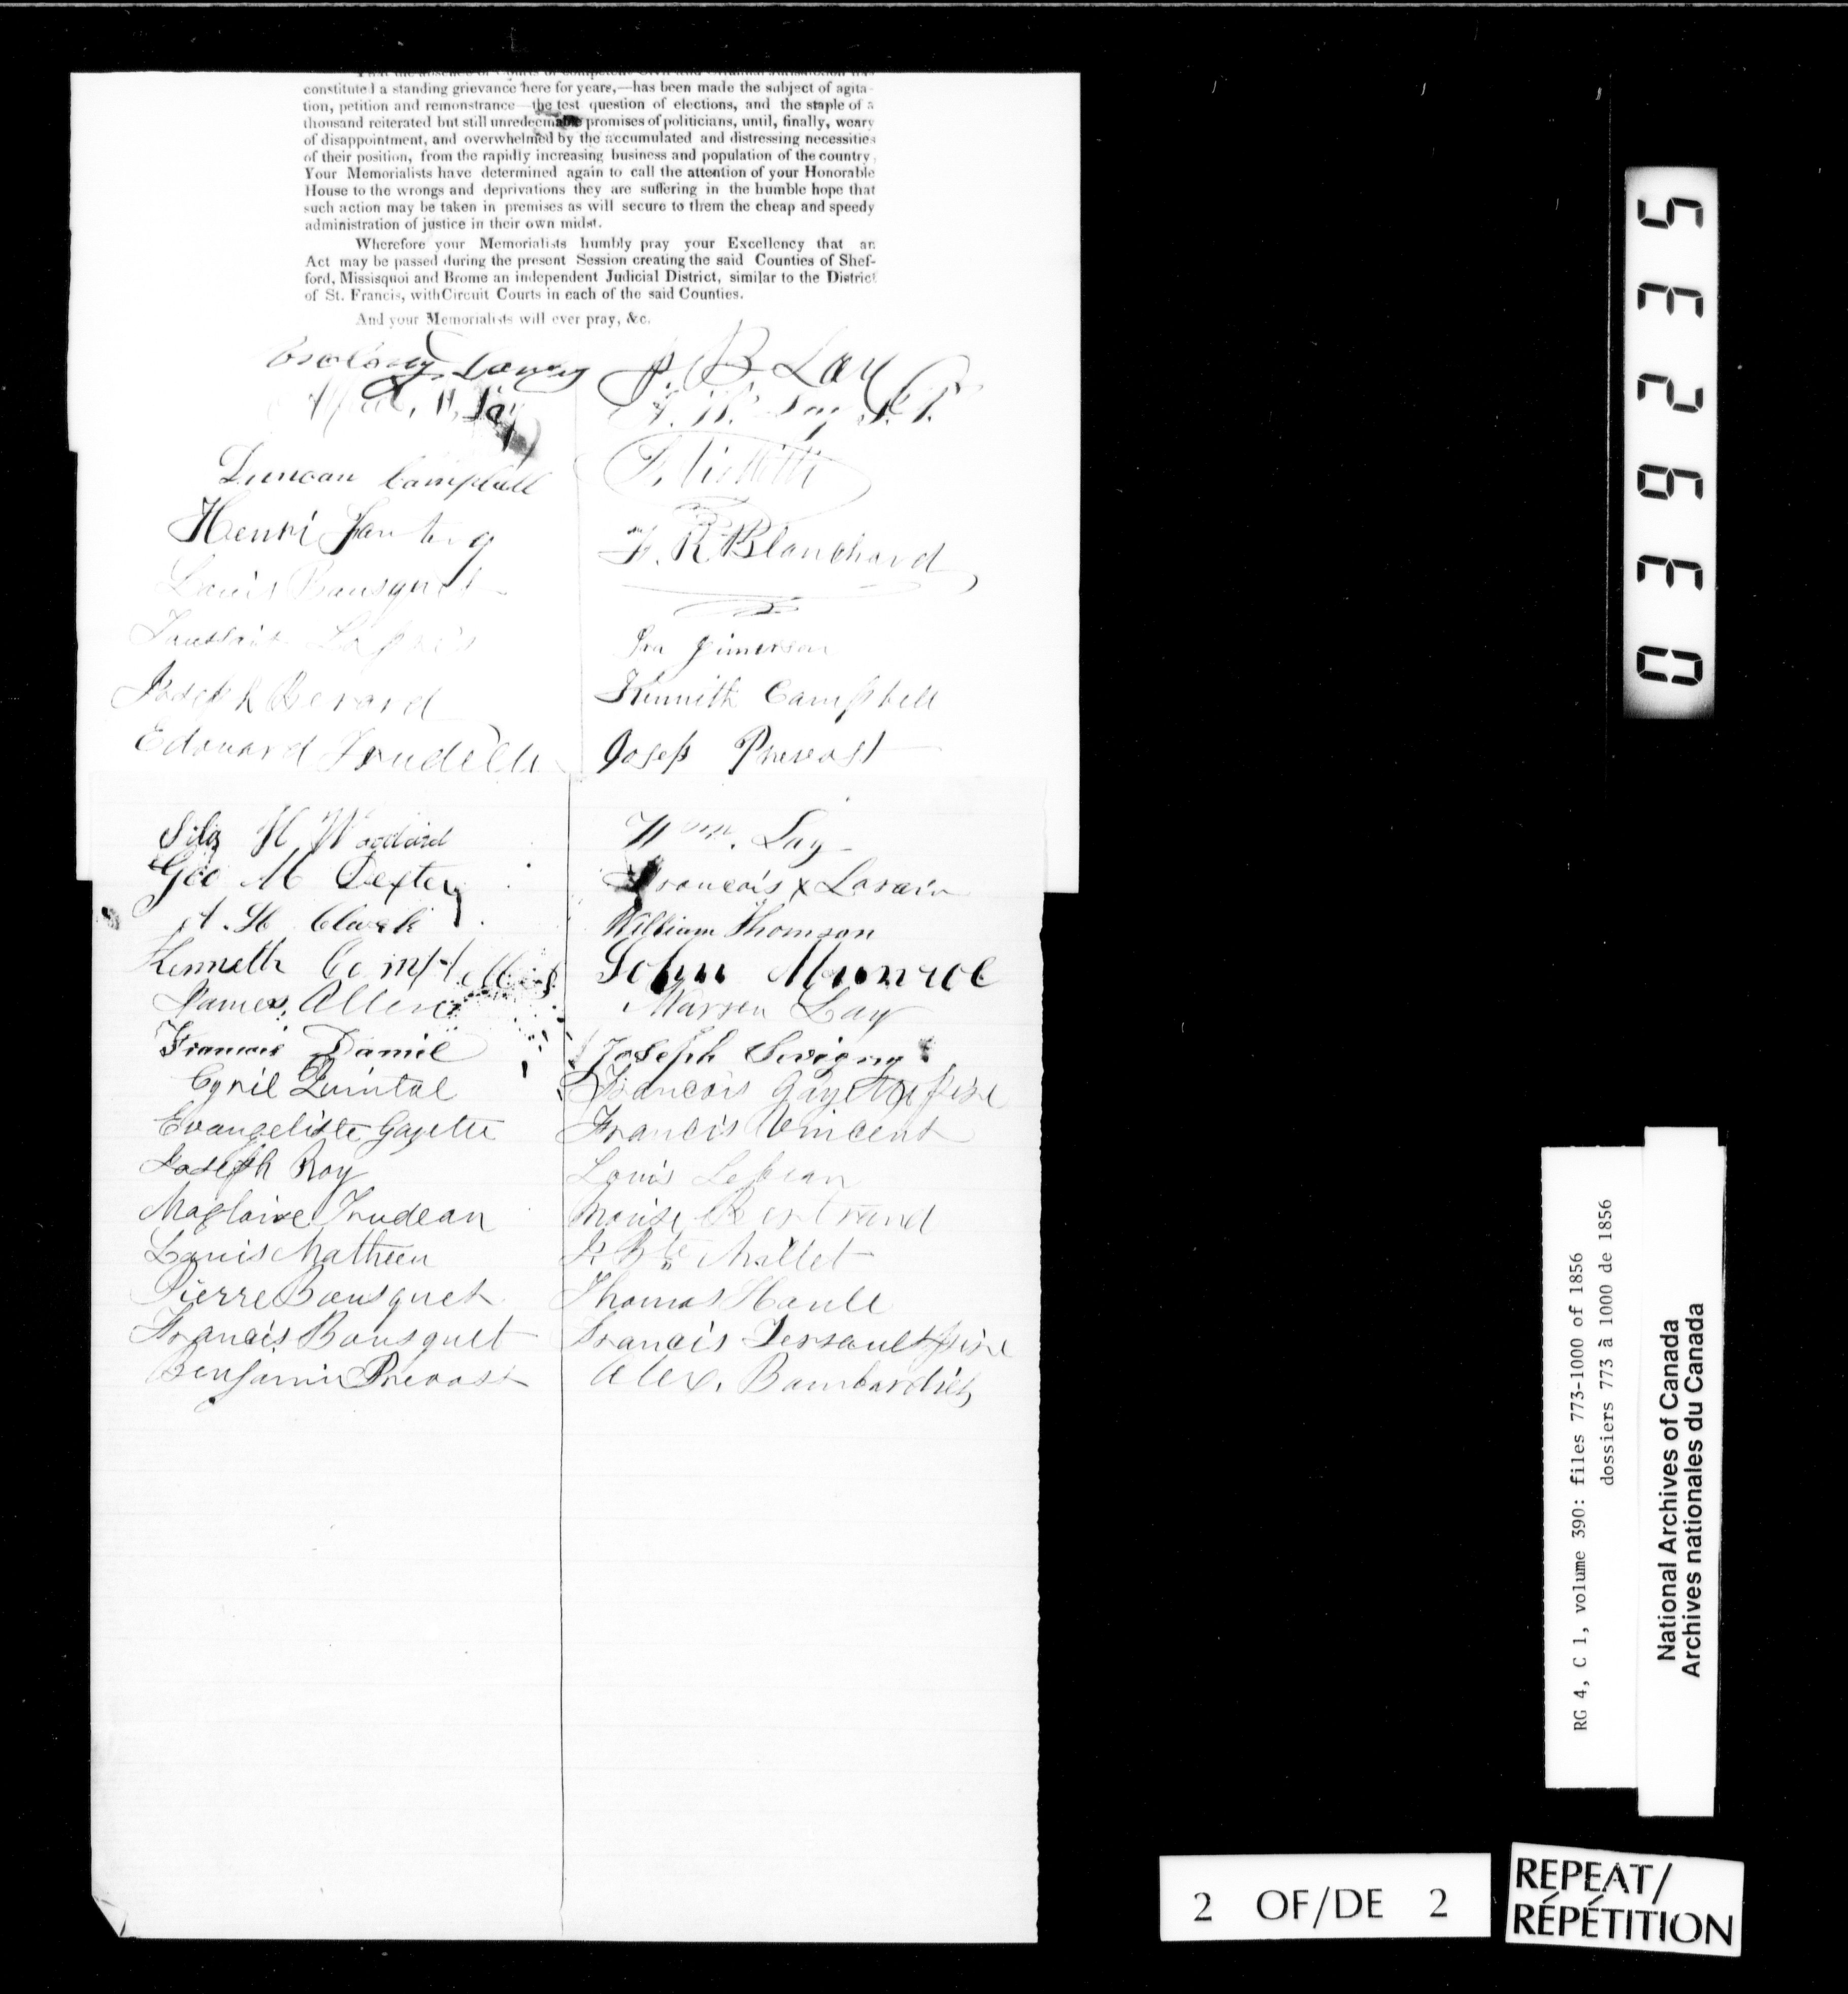 constituted a standing grievance here for years,—has been made the subject of agita-
tion, petition and remonstrance—the test question of elections, and the staple of a
thousand reiterated but still unredeemable promises of politicians, until, finally, weary
of disappointment, and overwhelmed by the accumulated and distressing necessities
of their position, from the rapidly increasing business and population of the country,
Your Memorialists have determined again to call the attention of your Honorable
House to the wrongs and deprivations they are suffering in the humble hope that
such action may be taken in premises as will secure to them the cheap and speedy
administration of justice in their own midst.
Wherefore your Memorialists humbly pray your Excellency that an
Act may be passed during the present Session creating the said Counties of Shef-
ford, Missisquoi and Brome an independent Judicial District, similar to the District
of St. Francis, with Circuit Courts in each of the said Counties.
And your Memorialists will ever pray, &c.
J. B Lay
Duncan Campbell
Henri
F. R Blanchard
Louis Bousquet
Toussaint
Ira Jimerson
Joseph Berard
Kennith Campbell
Edouard Trudelle
Josep Prevost
Silas H Woodard
Wm. Lay
Geo M Dexter
Francois x Larain
A. H Clark
William Thomson
Kenneth Campbell
John Munroe
James Allen
Warren Lay
Francois Daniel
Joseph Sevigny
Cyril Quintal
Francois Gayette pere
Evangeliste Gayette
Francis Vincent
Joseph Roy
Louis
Magloire Trudean
Moise Bertrand
Louis Mathieu
J. Bte Mallet
Pierre Bousquet
Thomas Houle
Francis Bousquet
Francis Tersault pere
Benjamin Prevost
Alex. Bombardier
036235
RG 4, C 1, volume 390: files 773-1000 of 1856
dossiers 773 à 1000 de 1856
National Archives of Canada
Archives nationales du Canada
2 OF/DE 2
REPEAT/
RÉPÉTITION